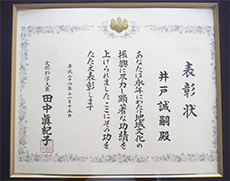 表彰状
井戸誠嗣殿
あなたは永年にわたり地域文化の
振興に尽力し顕著な功績を
上げられました ここにその功を
たたえ表彰します
平成二十四年十一月十九日
文部科学大臣
田中眞紀子